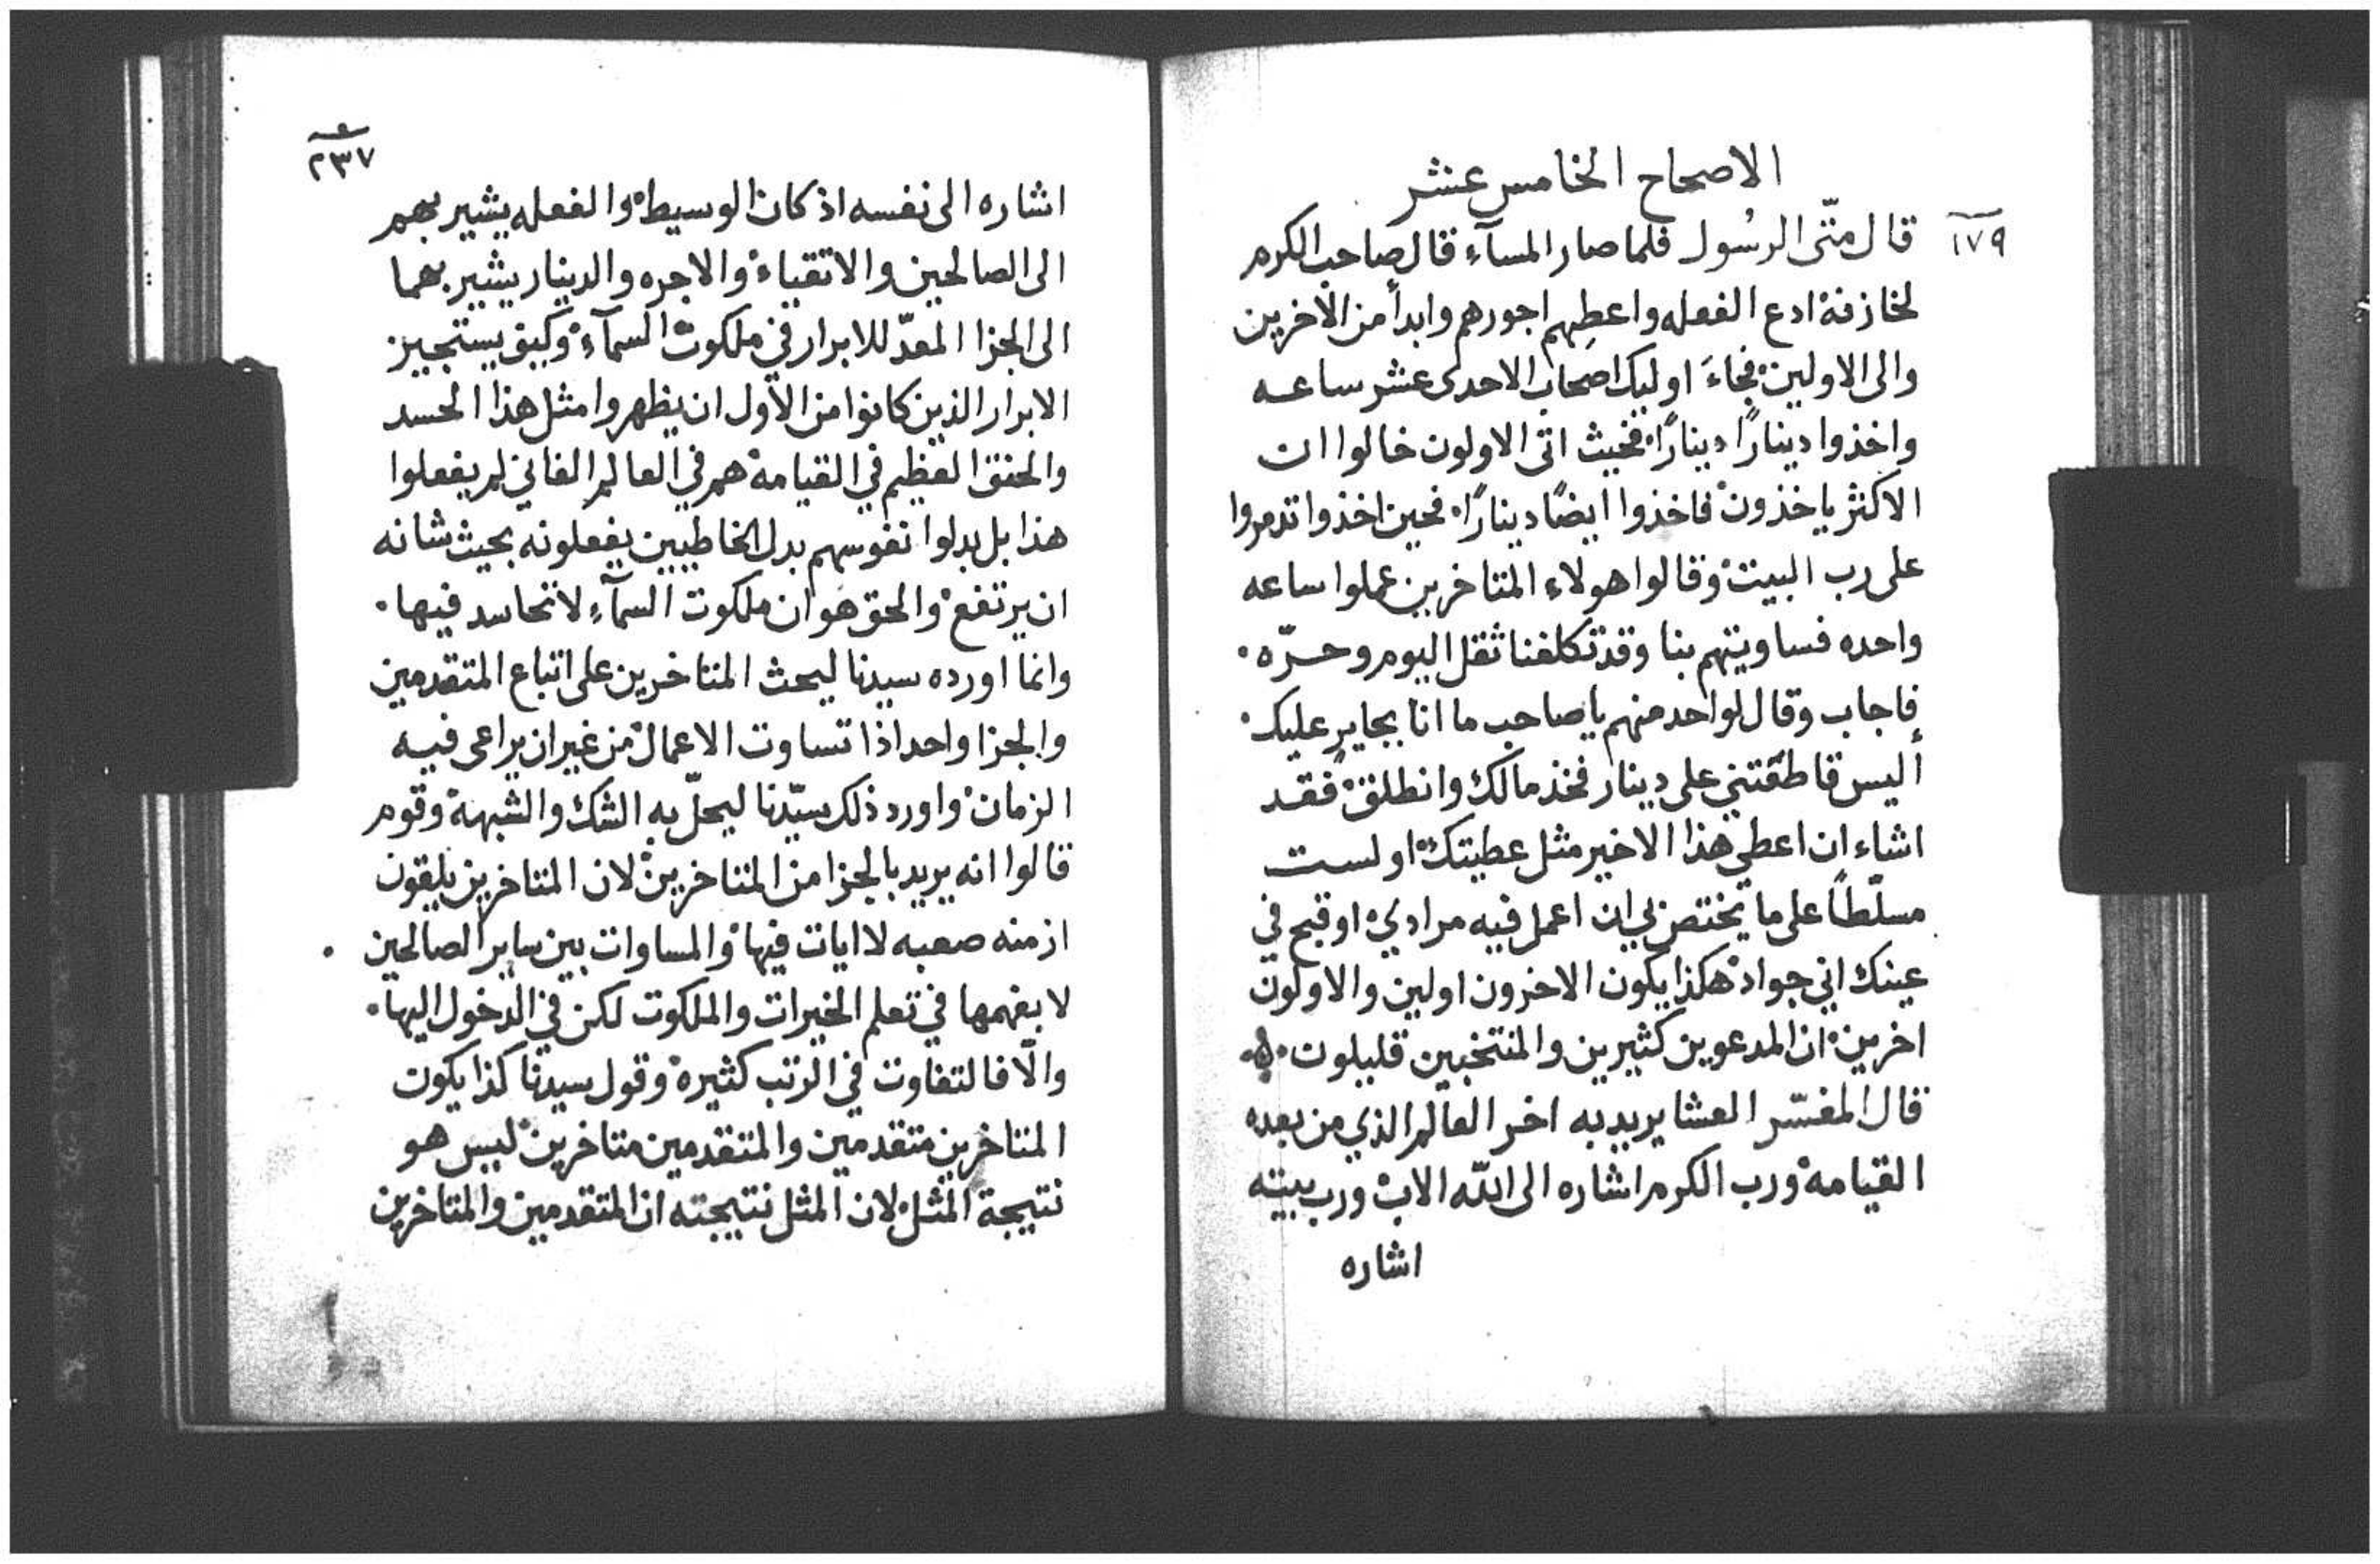 الاصحاح الخامس عشر
١٧٩
قال متّى الرسُول فلما صار المسآء قال صاحب الكرم
لخازنه ادع الفعله واعطِهم اجورهم وابدأ من الآخرين
والى الاولين فجاءَ اوليك اصحاب الاحدى عشر ساعه
واخذوا دينارًا دينارًا فحيث اتى الاولون خالوا ان
الاكثر ياخذون فاخذوا ايضًا دينارًا فحين اخذوا تدمروا
على رب البيت وقالوا هولاء المتاخرين عملوا ساعه
واحده فساويتهم بنا وقد تكلفنا ثقل اليوم وحرّه
فاجاب وقال لواحد منهم يا صاحب ما انا بجايرٍ عليك
أليس قاطعتني على دينار فخذ مالك وانطلق فقد
اشاء ان اعطي هذا الاخير مثل عطيتك او لست
مسلّطًا على ما يختص بي ان اعمل فيه مرادي او قبح في
عينك اني جواد هكذا يكون الاخرون اولين والاولون
اخرين ان المدعوين كثيرين والمنتخبين قليلون
قال المفسّر العشا يريد به اخر العالم الذي من بعده
القيامه ورب الكرم اشاره الى اللّه الاب ورب بيته
اشاره
٢٣٧
اشاره الى نفسه اذ كان الوسيط والفعله يشير بهم
الى الصالحين والاتقياء والاجره والدينار يشير بهما
الى الجزا المعدّ للابرار في ملكوت السمآء وكيف يستجيز
الابرار الذين كانوا من الأول ان يظهروا مثل هذا الحسد
والحنق العظيم في القيامه هم في العالم الفاني لم يفعلوا
هذا بل بدلوا نفوسهم بدل الخاطيين يفعلونه بحيث شانه
ان يرتفع والحق هو ان ملكوت السمآء لا تحاسد فيها
وانما اورده سيدنا ليحث المتاخرين على اتباع المتقدمين
والجزا واحد اذا تساوت الاعمال من غير ان يراعى فيه
الزمان واورد ذلك سيّدنا ليحلّ به الشك والشبهه وقوم
قالوا انه يريد بالجزا من المتاخرين لان المتاخرين يلقون
ازمنه صعبه لا ايات فيها والمساوات بين ساير الصالحين
لا يفهمها في تعلم الخيرات والملكوت لكن في الدخول اليها
والّا فالتفاوت في الرتب كثيره وقول سيدنا كذا يكون
المتاخرين متقدمين والمتقدمين متاخرين ليس هو
نتيجة المثل لان المثل نتيجته ان المتقدمين والمتاخرين